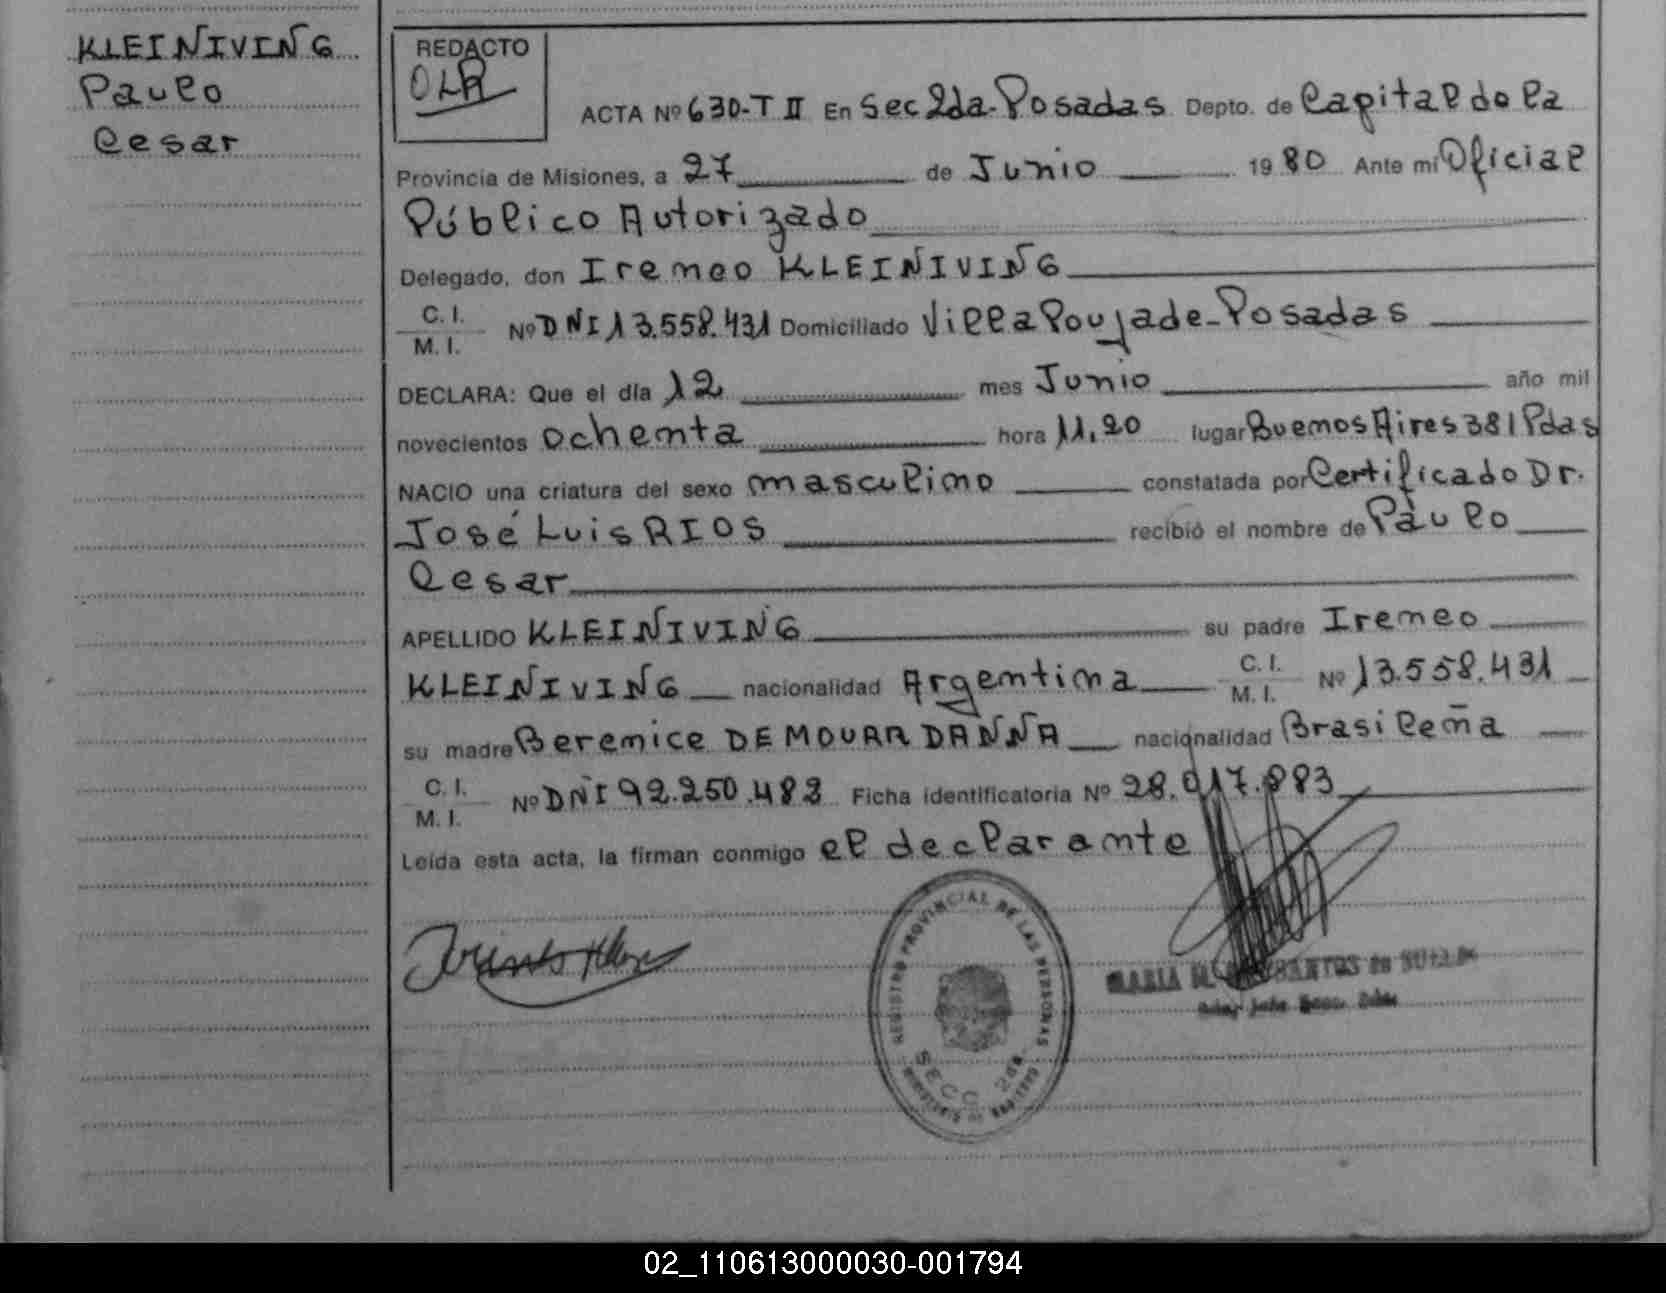 KLEINIVING
Paulo
Cesar
REDACTO
OLR
ACTA Nº 630-T II En Sec 2da-Posadas Depto. de Capital de la
Provincia de Misiones, a 27 de Junio 1980 Ante mi Oficial
Público Autorizado
Delegado, don Ireneo KLEINIVING
C. I.
M. I. Nº DNI 13.558.431 Domiciliado Villa Poujade-Posadas
DECLARA: Que el día 12 mes Junio año mil
novecientos ochenta hora 11,20 lugar Buenos Aires 381 Pdas
NACIO una criatura del sexo masculino constatada por Certificado Dr.
José Luis RIOS recibió el nombre de Paulo
Cesar
APELLIDO KLEINIVING su padre Ireneo
KLEINIVING nacionalidad Argentina C. I. M. I. Nº 13.558.431
su madre Berenice DE MOURA DANNA nacionalidad Brasileña
C. I.
M. I. Nº DNI 92.250.483 Ficha identificatoria Nº 28.017.883
Leída esta acta, la firman conmigo el declarante
REGISTRO PROVINCIAL DE LAS PERSONAS
SECC. 2da
MARIA
02_110613000030-001794